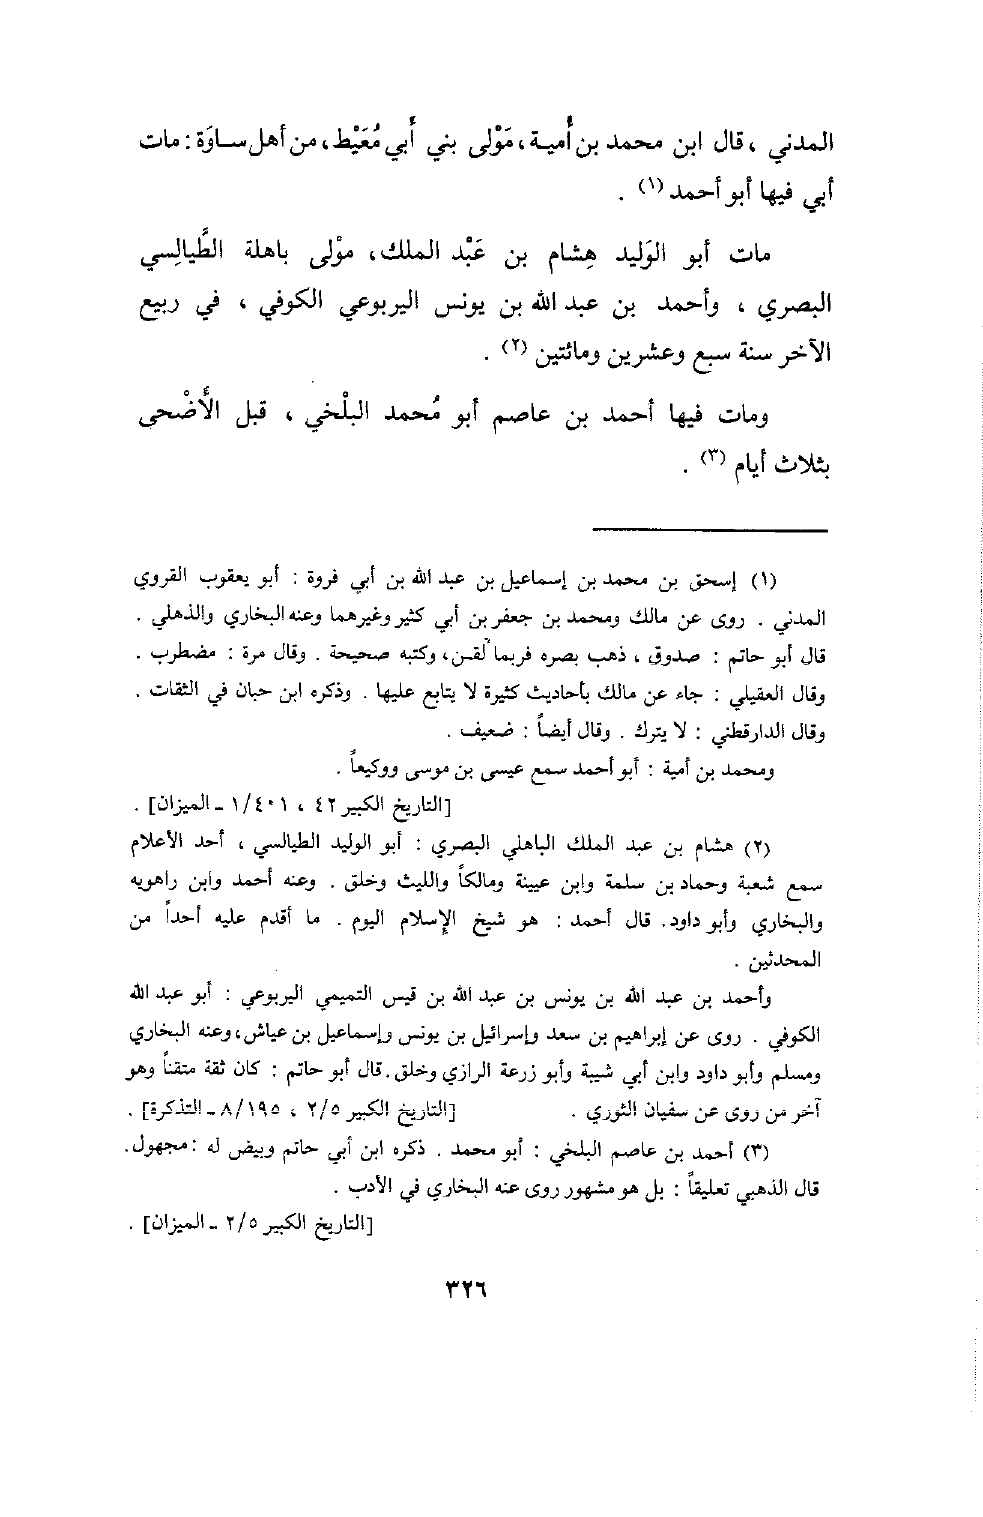 المدني ، قال ابن محمد بن أُمية ، مَوْلى بني أَبي مُعَيْط ، من أهل ساوَة : مات
أبي فيها أبو أحمد (١) .
مات أبو الوَليد هِشام بن عَبْد الملك ، موْلى باهلة الطَّيالِسي
البصري ، وأحمد بن عبد الله بن يونس اليربوعي الكوفي ، في ربيع
الآخر سنة سبع وعشرين ومائتين (٢) .
ومات فيها أحمد بن عاصم أبو مُحمد البلْخي ، قبل الأَضْحى
بثلاث أيام (٣) .
(١) إسحق بن محمد بن إسماعيل بن عبد الله بن أبي فروة : أبو يعقوب القروي
المدني . روى عن مالك ومحمد بن جعفر بن أبي كثير وغيرهما وعنه البخاري والذهلي .
قال أبو حاتم : صدوق ، ذهب بصره فربما لُقن ، وكتبه صحيحة . وقال مرة : مضطرب .
وقال العقيلي : جاء عن مالك بأحاديث كثيرة لا يتابع عليها . وذكره ابن حبان في الثقات .
وقال الدارقطني : لا يترك . وقال أيضاً : ضعيف .
ومحمد بن أمية : أبو أحمد سمع عيسى بن موسى ووكيعاً .
[التاريخ الكبير ٤٢ ، ١/٤٠١ ـ الميزان] .
(٢) هشام بن عبد الملك الباهلي البصري : أبو الوليد الطيالسي ، أحد الأعلام
سمع شعبة وحماد بن سلمة وابن عيينة ومالكاً والليث وخلق . وعنه أحمد وابن راهويه
والبخاري وأبو داود . قال أحمد : هو شيخ الإسلام اليوم . ما أقدم عليه أحداً من
المحدثين .
وأحمد بن عبد الله بن يونس بن عبد الله بن قيس التميمي اليربوعي : أبو عبد الله
الكوفي . روى عن إبراهيم بن سعد وإسرائيل بن يونس وإسماعيل بن عياش ، وعنه البخاري
ومسلم وأبو داود وابن أبي شيبة وأبو زرعة الرازي وخلق . قال أبو حاتم : كان ثقة متقناً وهو
آخر من روى عن سفيان الثوري . [التاريخ الكبير ٢/٥ ، ٨/١٩٥ ـ التذكرة] .
(٣) أحمد بن عاصم البلخي : أبو محمد . ذكره ابن أبي حاتم وبيض له : مجهول .
قال الذهبي تعليقاً : بل هو مشهور روى عنه البخاري في الأدب .
[التاريخ الكبير ٢/٥ ـ الميزان] .
٣٢٦